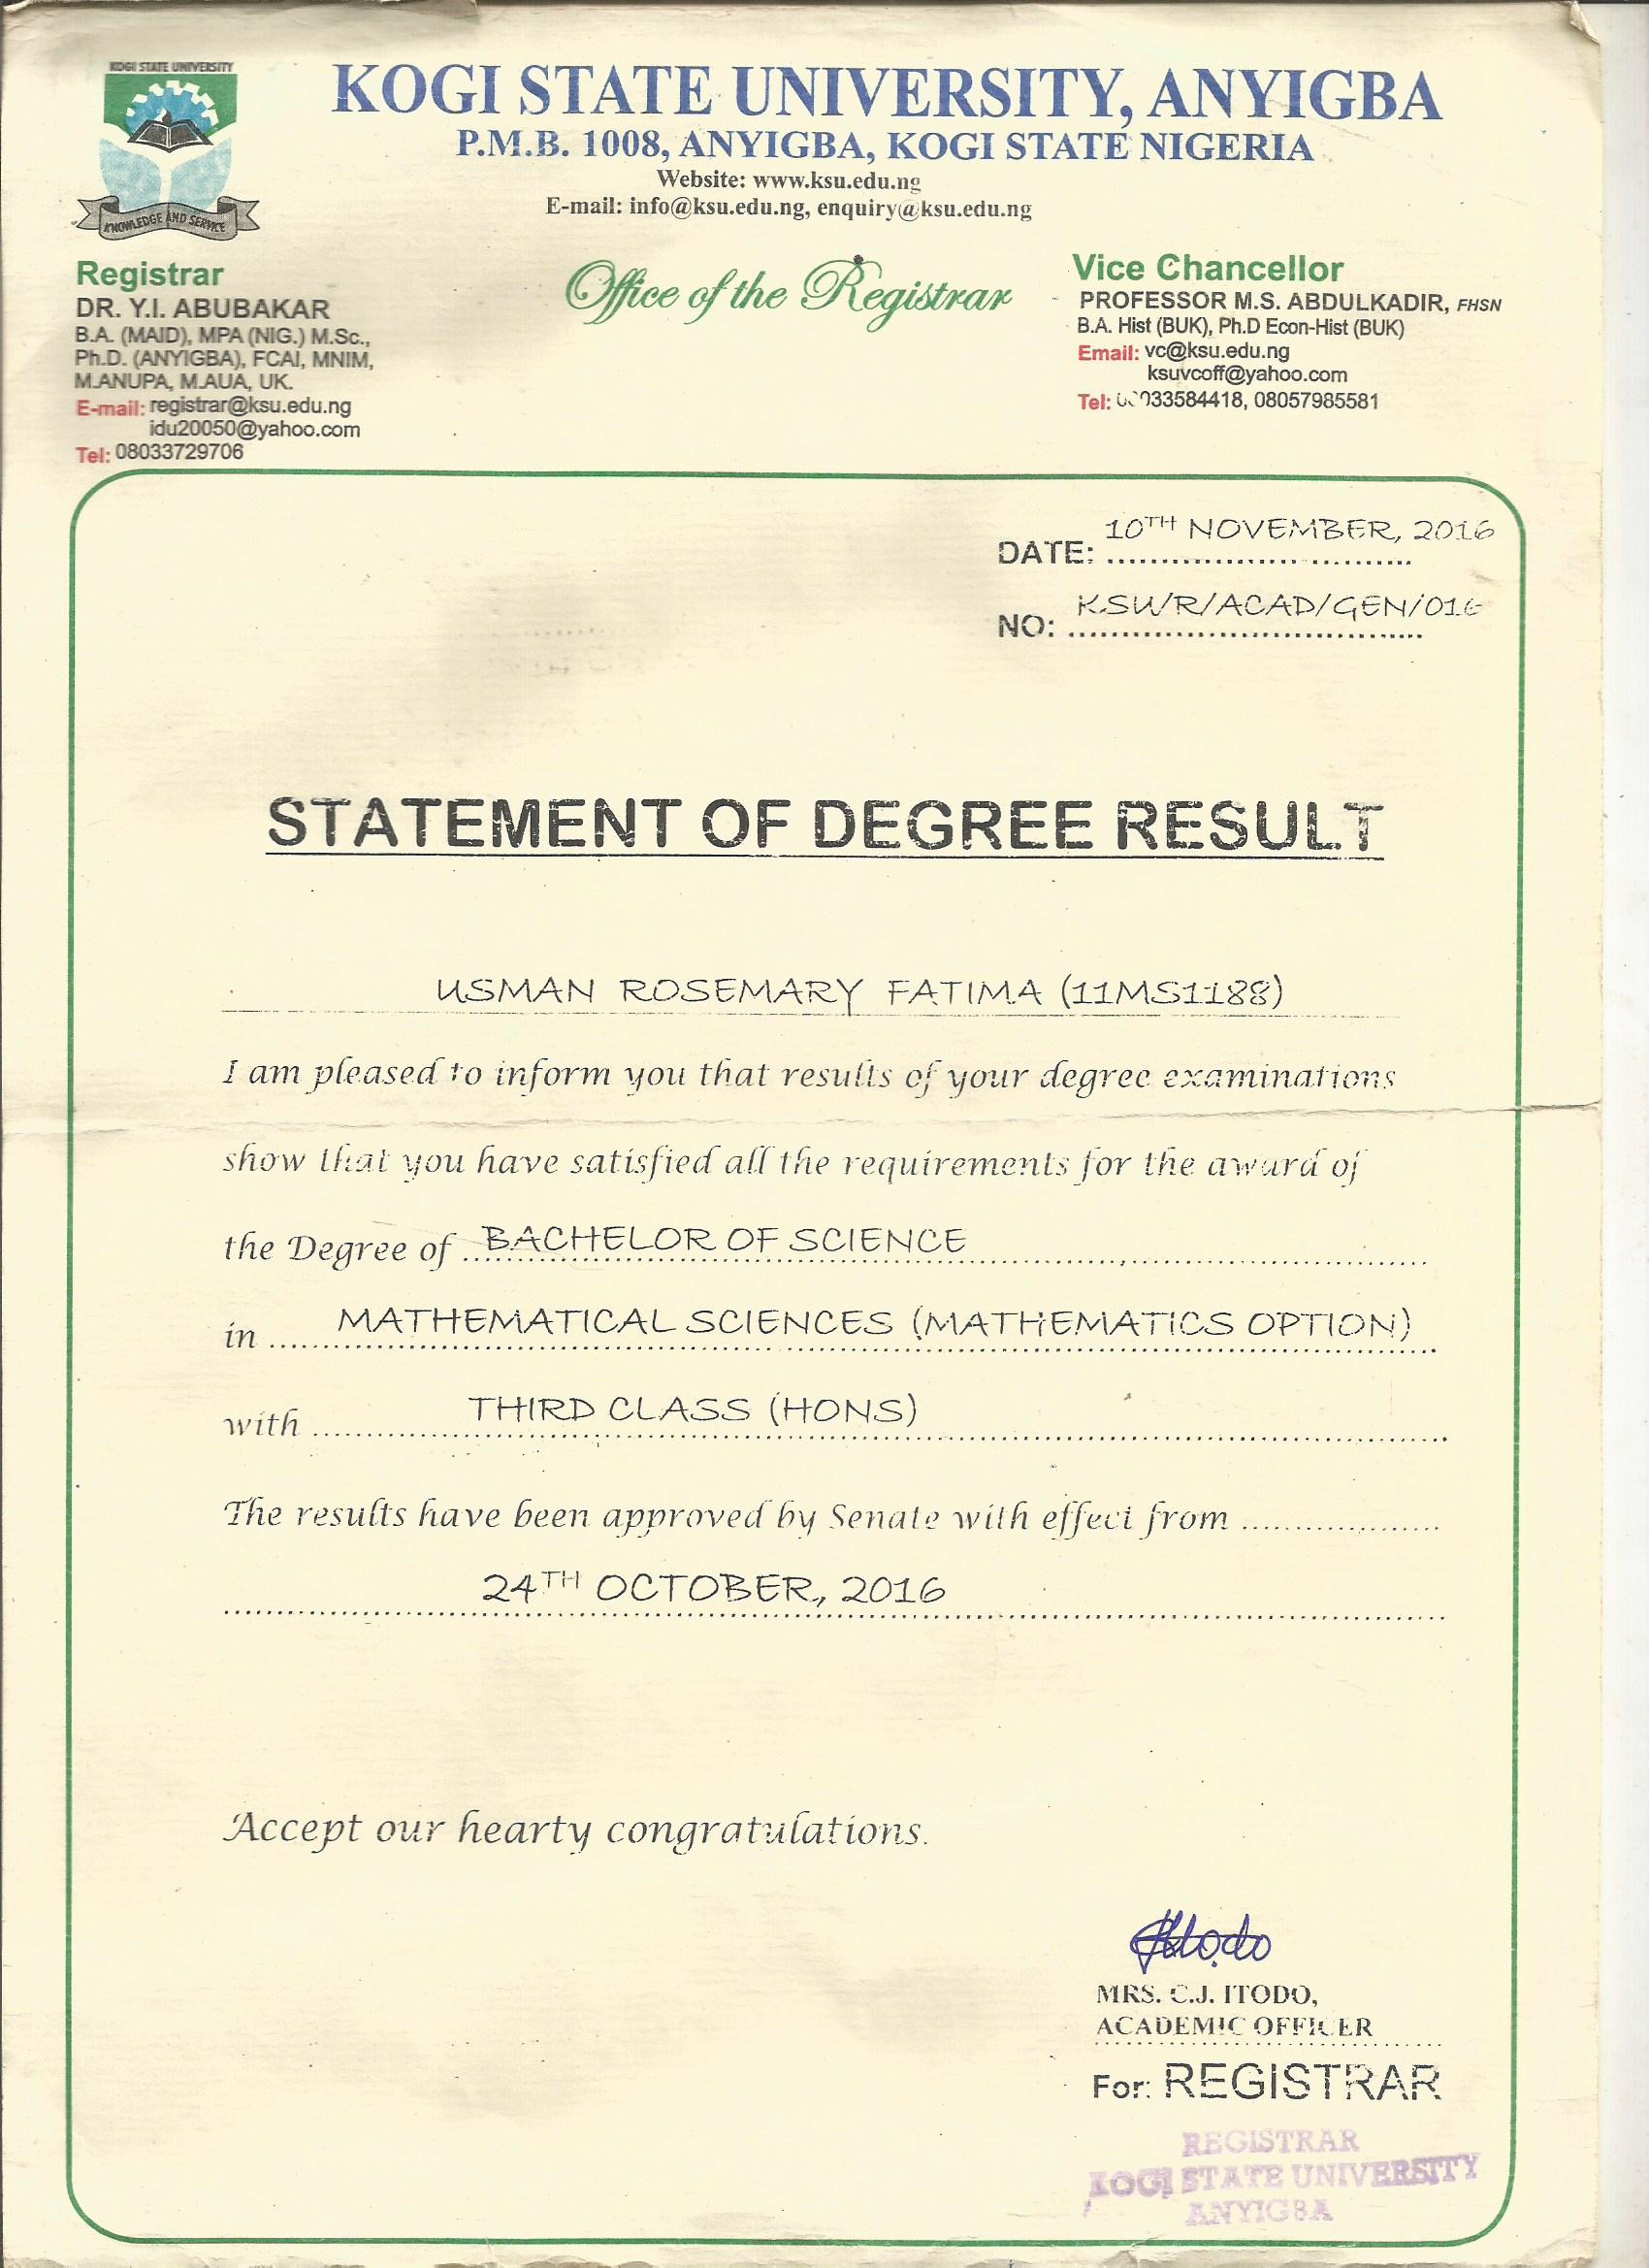 KOGI STATE UNIVERSITY
KNOWLEDGE AND SERVICE
KOGI STATE UNIVERSITY, ANYIGBA
P.M.B. 1008, ANYIGBA, KOGI STATE NIGERIA
Website: www.ksu.edu.ng
E-mail: info@ksu.edu.ng, enquiry@ksu.edu.ng
Registrar
DR. Y.I. ABUBAKAR
B.A. (MAID), MPA (NIG.) M.Sc.,
Ph.D. (ANYIGBA), FCAI, MNIM,
M.ANUPA, M.AUA, UK.
E-mail: registrar@ksu.edu.ng
idu20050@yahoo.com
Tel: 08033729706
Office of the Registrar
Vice Chancellor
PROFESSOR M.S. ABDULKADIR, FHSN
B.A. Hist (BUK), Ph.D Econ-Hist (BUK)
Email: vc@ksu.edu.ng
ksuvcoff@yahoo.com
Tel: 08057985581
DATE: 10TH NOVEMBER, 2016
NO: KSU/R/ACAD/GEN/016
STATEMENT OF DEGREE RESULT
USMAN ROSEMARY FATIMA (11MS1188)
I am pleased to inform you that results of your degree examinations
show that you have satisfied all the requirements for the award of
the Degree of BACHELOR OF SCIENCE
in MATHEMATICAL SCIENCES (MATHEMATICS OPTION)
with THIRD CLASS (HONS)
The results have been approved by Senate with effect from
24TH OCTOBER, 2016
Accept our hearty congratulations.
Itodo
MRS. C.J. ITODO,
ACADEMIC OFFICER
For: REGISTRAR
REGISTRAR
KOGI STATE UNIVERSITY
ANYIGBA